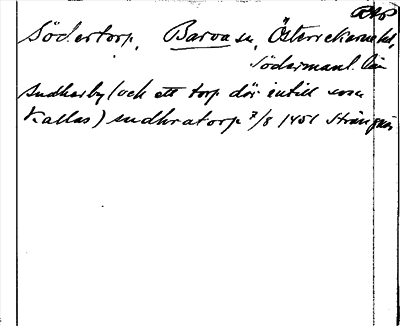 Södertorp, Barva sn, Österrekarne hd,
Södermanl. län
sudherby (och ett torp där intill som
kallas) sudhratorp 7/8 1451 Strängnäs